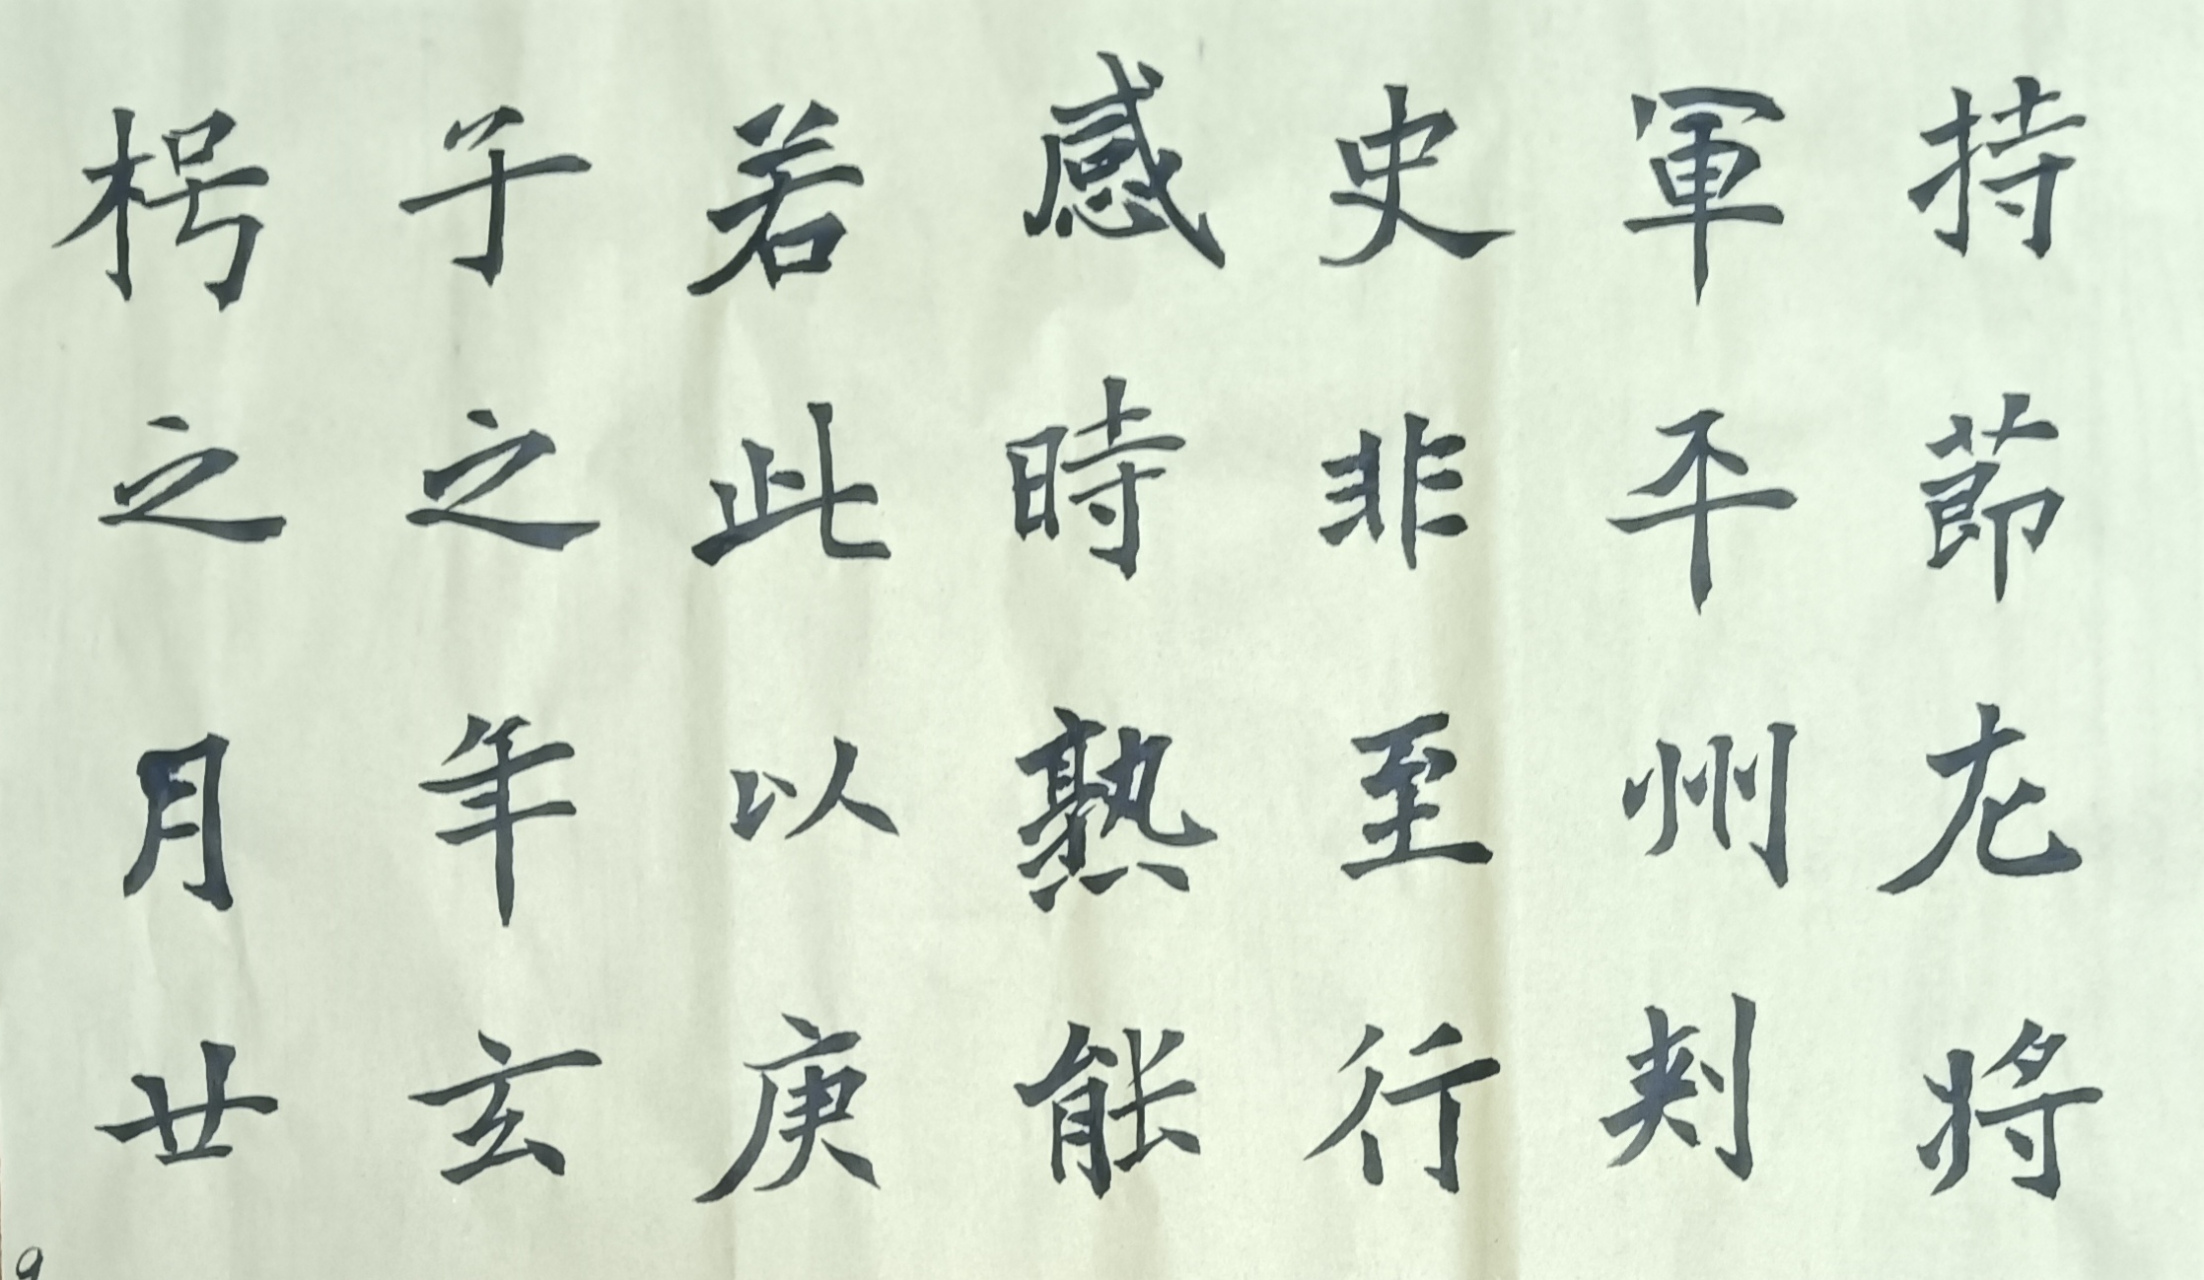 持莭左將
軍平州刾
史非至行
感時熟能
若此以庚
子之年玄
枵之月廿